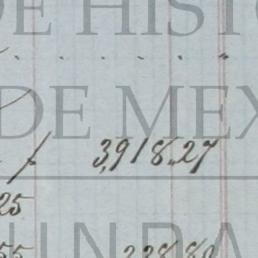 DE HISTO
DE MEX
3,918.27
25
55 228.80
FUNDA